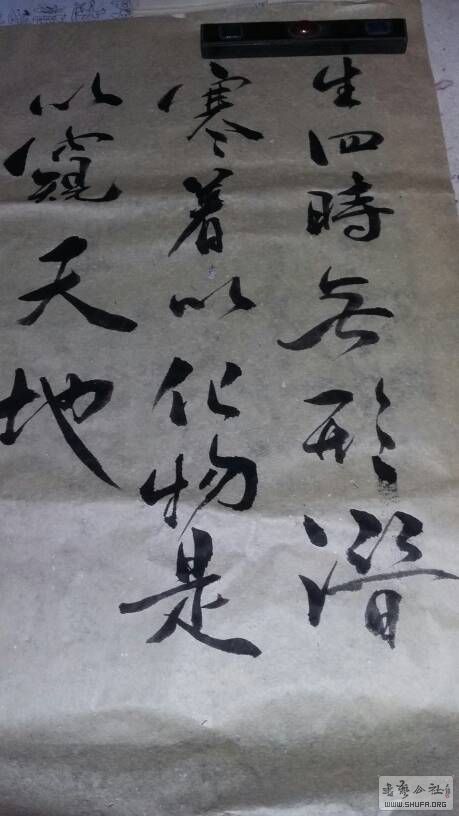 生四時无形潛
寒暑以化物是
以窺天地
書藝公社
WWW.SHUFA.ORG